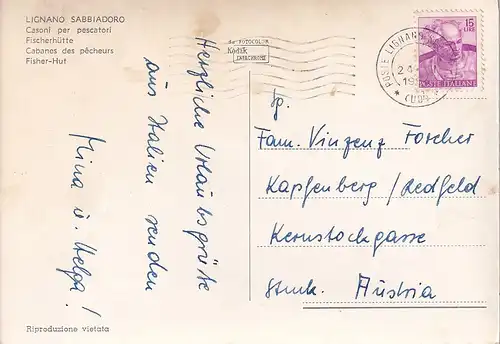 LIGNANO SABBIADORO
Casoni per pescatori
Fischerhütte
Cabanes des pêcheurs
Fisher-Hut
Herzliche Urlaubsgrüße
aus Italien senden
Mina u. Helga!
Riproduzione vietata
da FOTOCOLOR
Kodak
EKTACHROME
POSTE LIGNAN
24
19
(UD)
15
LIRE
POSTE ITALIANE
Fam. Vinzenz Forcher
Kapfenberg/Redfeld
Kernstockgasse
Stmk. Austria